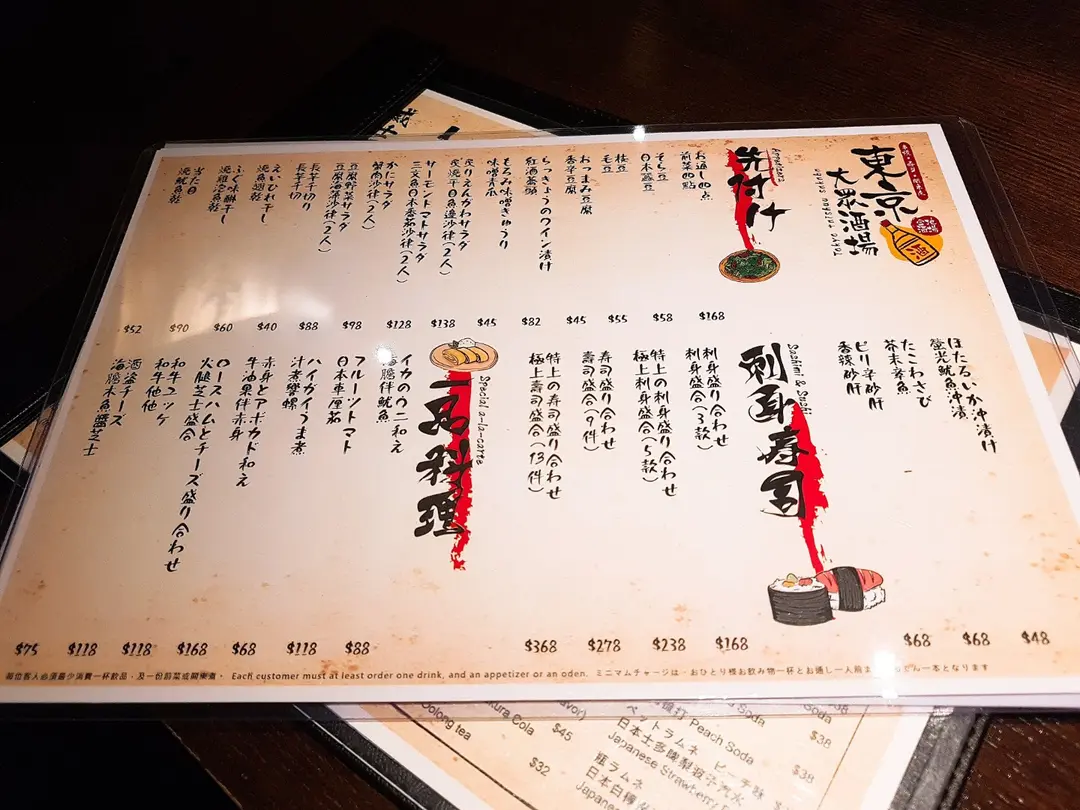 東京
大眾酒場
TOKYO NOSTALGIC
Appetizers
先付け
お通し四点
前菜四點
$168
そら豆
日本蠶豆
$58
枝豆
毛豆
$55
おつまみ豆腐
香辛豆腐
$45
らっきょうのワイン漬け
紅酒蕎頭
$82
もろみ味噌きゅうり
味噌青瓜
$45
炙りえんがわサラダ
炙燒平目魚邊沙律(2人)
$138
サーモントマトサラダ
三文魚日本番茄沙律(2人)
$128
かにサラダ
蟹肉沙律(2人)
$98
豆腐野菜サラダ
豆腐油菜沙律(2人)
$88
長芋千切り
長芋千切
$40
えいひれ干し
燒魚翅乾
$60
ふぐ味醂干し
燒雞泡魚乾
$90
燒魷魚乾
$52
ほたるいか沖漬け
螢光魷魚沖漬
$48
たこわさび
芥末章魚
$68
ピリ辛砂肝
香辣砂肝
$68
Sashimi & Sushi
刺身寿司
刺身盛り合わせ
刺身盛合(3款)
$168
特上の刺身盛り合わせ
極上刺身盛合(5款)
$238
寿司盛り合わせ
壽司盛合(9件)
$278
特上の寿司盛り合わせ
極上壽司盛合(13件)
$368
Special a-la-carte
一品料理
イカのウニ和え
海膽伴魷魚
$88
フルーツトマト
日本車厘茄
$118
ハイガイうま煮
汁煮響螺
$68
赤身とアボカド和え
牛油果伴赤身
$168
ロースハムとチーズ盛り合わせ
火腿芝士盛合
$118
和牛ユッケ
和牛他他
$118
酒盗チーズ
海膽木魚醬芝士
$75
每位客人必須最少消費一杯飲品，及一份前菜或關東煮。 Each customer must at least order one drink, and an appetizer or an oden. ミニマムチャージは、おひとり様お飲み物一杯とお通し一人前
一本となります
Oolong tea
$32
kura Cola
$45
Peach Soda
ペットラムネ ピーチ味
$38
Soda
$38
日本士多啤梨波子汽水
Japanese Strawberry
$38
瓶ラムネ